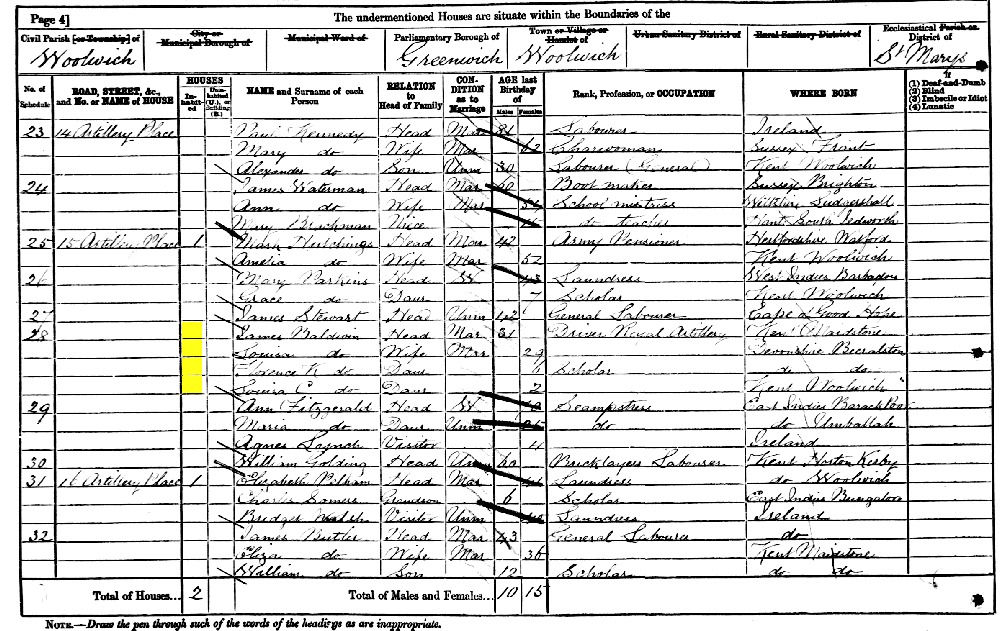 Page 4]
The undermentioned Houses are situate within the Boundaries of the
Civil Parish [or Township] of Woolwich
City or Municipal Borough of
Municipal Ward of
Parliamentary Borough of Greenwich
Town or Village or Hamlet of Woolwich
Urban Sanitary District of
Rural Sanitary District of
Ecclesiastical Parish or District of St Marys
No. of Schedule
ROAD, STREET, &c., and No. or NAME of HOUSE
HOUSES
Inhabited
Uninhabited (U.), or Building (B.)
NAME and Surname of each Person
RELATION to Head of Family
CONDITION as to Marriage
AGE last Birthday of
Males Females
Rank, Profession, or OCCUPATION
WHERE BORN
If
(1) Deaf-and-Dumb
(2) Blind
(3) Imbecile or Idiot
(4) Lunatic
23 14 Artillery Place Paul Kennedy Head Mar Labourer Ireland
Mary do Wife Mar 62 Charwoman Sussex Frant
Alexander do Son Unm 30 Labourer (General) Kent Woolwich
24 James Waterman Head Mar Boot maker Sussex Brighton
Ann do Wife Mar School mistress Wiltshire Ludgershall
Mary Niece do teacher Hant South Tedworth
25 15 Artillery Place 1 Mark Hutchings Head Mar 42 Army Pensioner Hertfordshire Watford
Amelia do Wife Mar 52 Kent Woolwich
26 Mary Parkins Head W Laundress West Indies Barbadoes
Grace do Daur 7 Scholar Kent Woolwich
27 James Stewart Head Unm 42 General Labourer Cape of Good Hope
28 James Baldwin Head Mar 31 Driver Royal Artillery Kent Maidstone
Louisa do Wife Mar 29 Devonshire Beeralston
Florence do Daur Scholar do do
Louisa C do Daur 2 Kent Woolwich
29 Ann Fitzgerald Head W Seampstress East Indies
Maria do Daur Unm do do Umballah
Agnes Visitor 4 Ireland
30 William Golding Head Un Bricklayers Labourer Kent Horton Kirby
31 16 Artillery Place 1 Elizabeth Head Mar Laundress do Woolwich
Charles Somers Grandson 6 Scholar East Indies
Bridget Walsh Visitor Unm Laundress Ireland
32 James Butler Head Mar 43 General Labourer do
Eliza do Wife Mar 36 Kent Maidstone
William do Son 12 Scholar do do
Total of Houses... 2 Total of Males and Females... 10 15
NOTE.—Draw the pen through such of the words of the headings as are inappropriate.